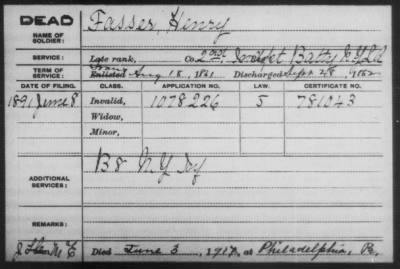 DEAD
NAME OF SOLDIER:
Fasser, Henry
SERVICE:
Late rank, Co. 2nd Indpt Batty N.Y.L.A
TERM OF SERVICE:
Enlisted Aug 18, 1861 Discharged Sept 28, 1862
DATE OF FILING. CLASS. APPLICATION NO. LAW. CERTIFICATE NO.
1891 June 8 Invalid, 1078226 5 781043
Widow,
Minor,
ADDITIONAL SERVICES:
B 8 N.Y. Inf
REMARKS:
Died June 3, 191 at Philadelphia, Pa.